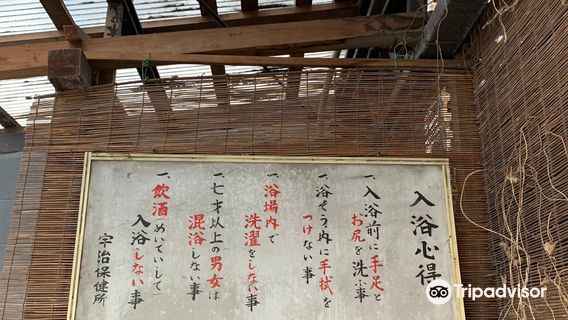 入浴心得
一、入浴前に手足と
お尻を洗ふ事
一、浴そう内に手拭を
つけない事
一、浴場内で
洗濯をしない事
一、七才以上の男女は
混浴しない事
一、飲酒めいていして
入浴しない事
宇治保健所
Tripadvisor